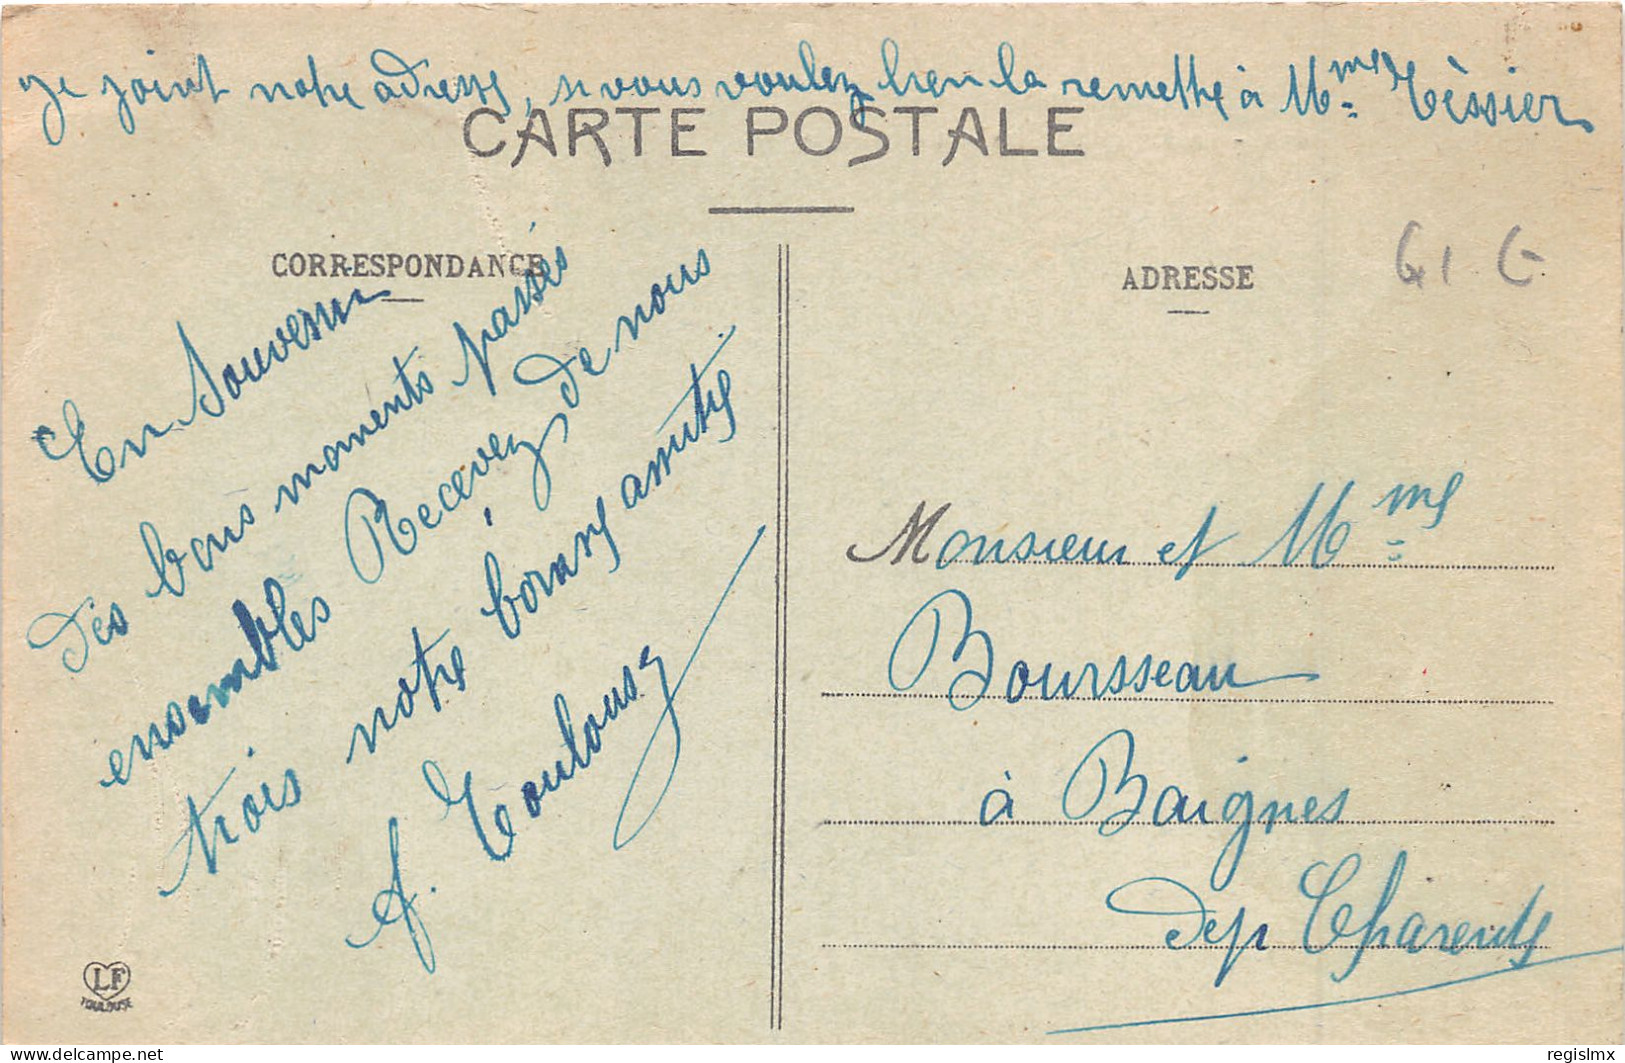 Je joint notre adresse, si vous voulez bien la remettre à Mme Tèssier
CARTE POSTALE
CORRESPONDANCE
En Souvenir
des bons moments passés
ensembles Recevez de nous
trois notre bonne amitié
A. Toulouse
LF
TOULOUSE
ADRESSE
Monsieur et Mme
Boursseau
à Baignes
dep Charente
delcampe.net
regislmx